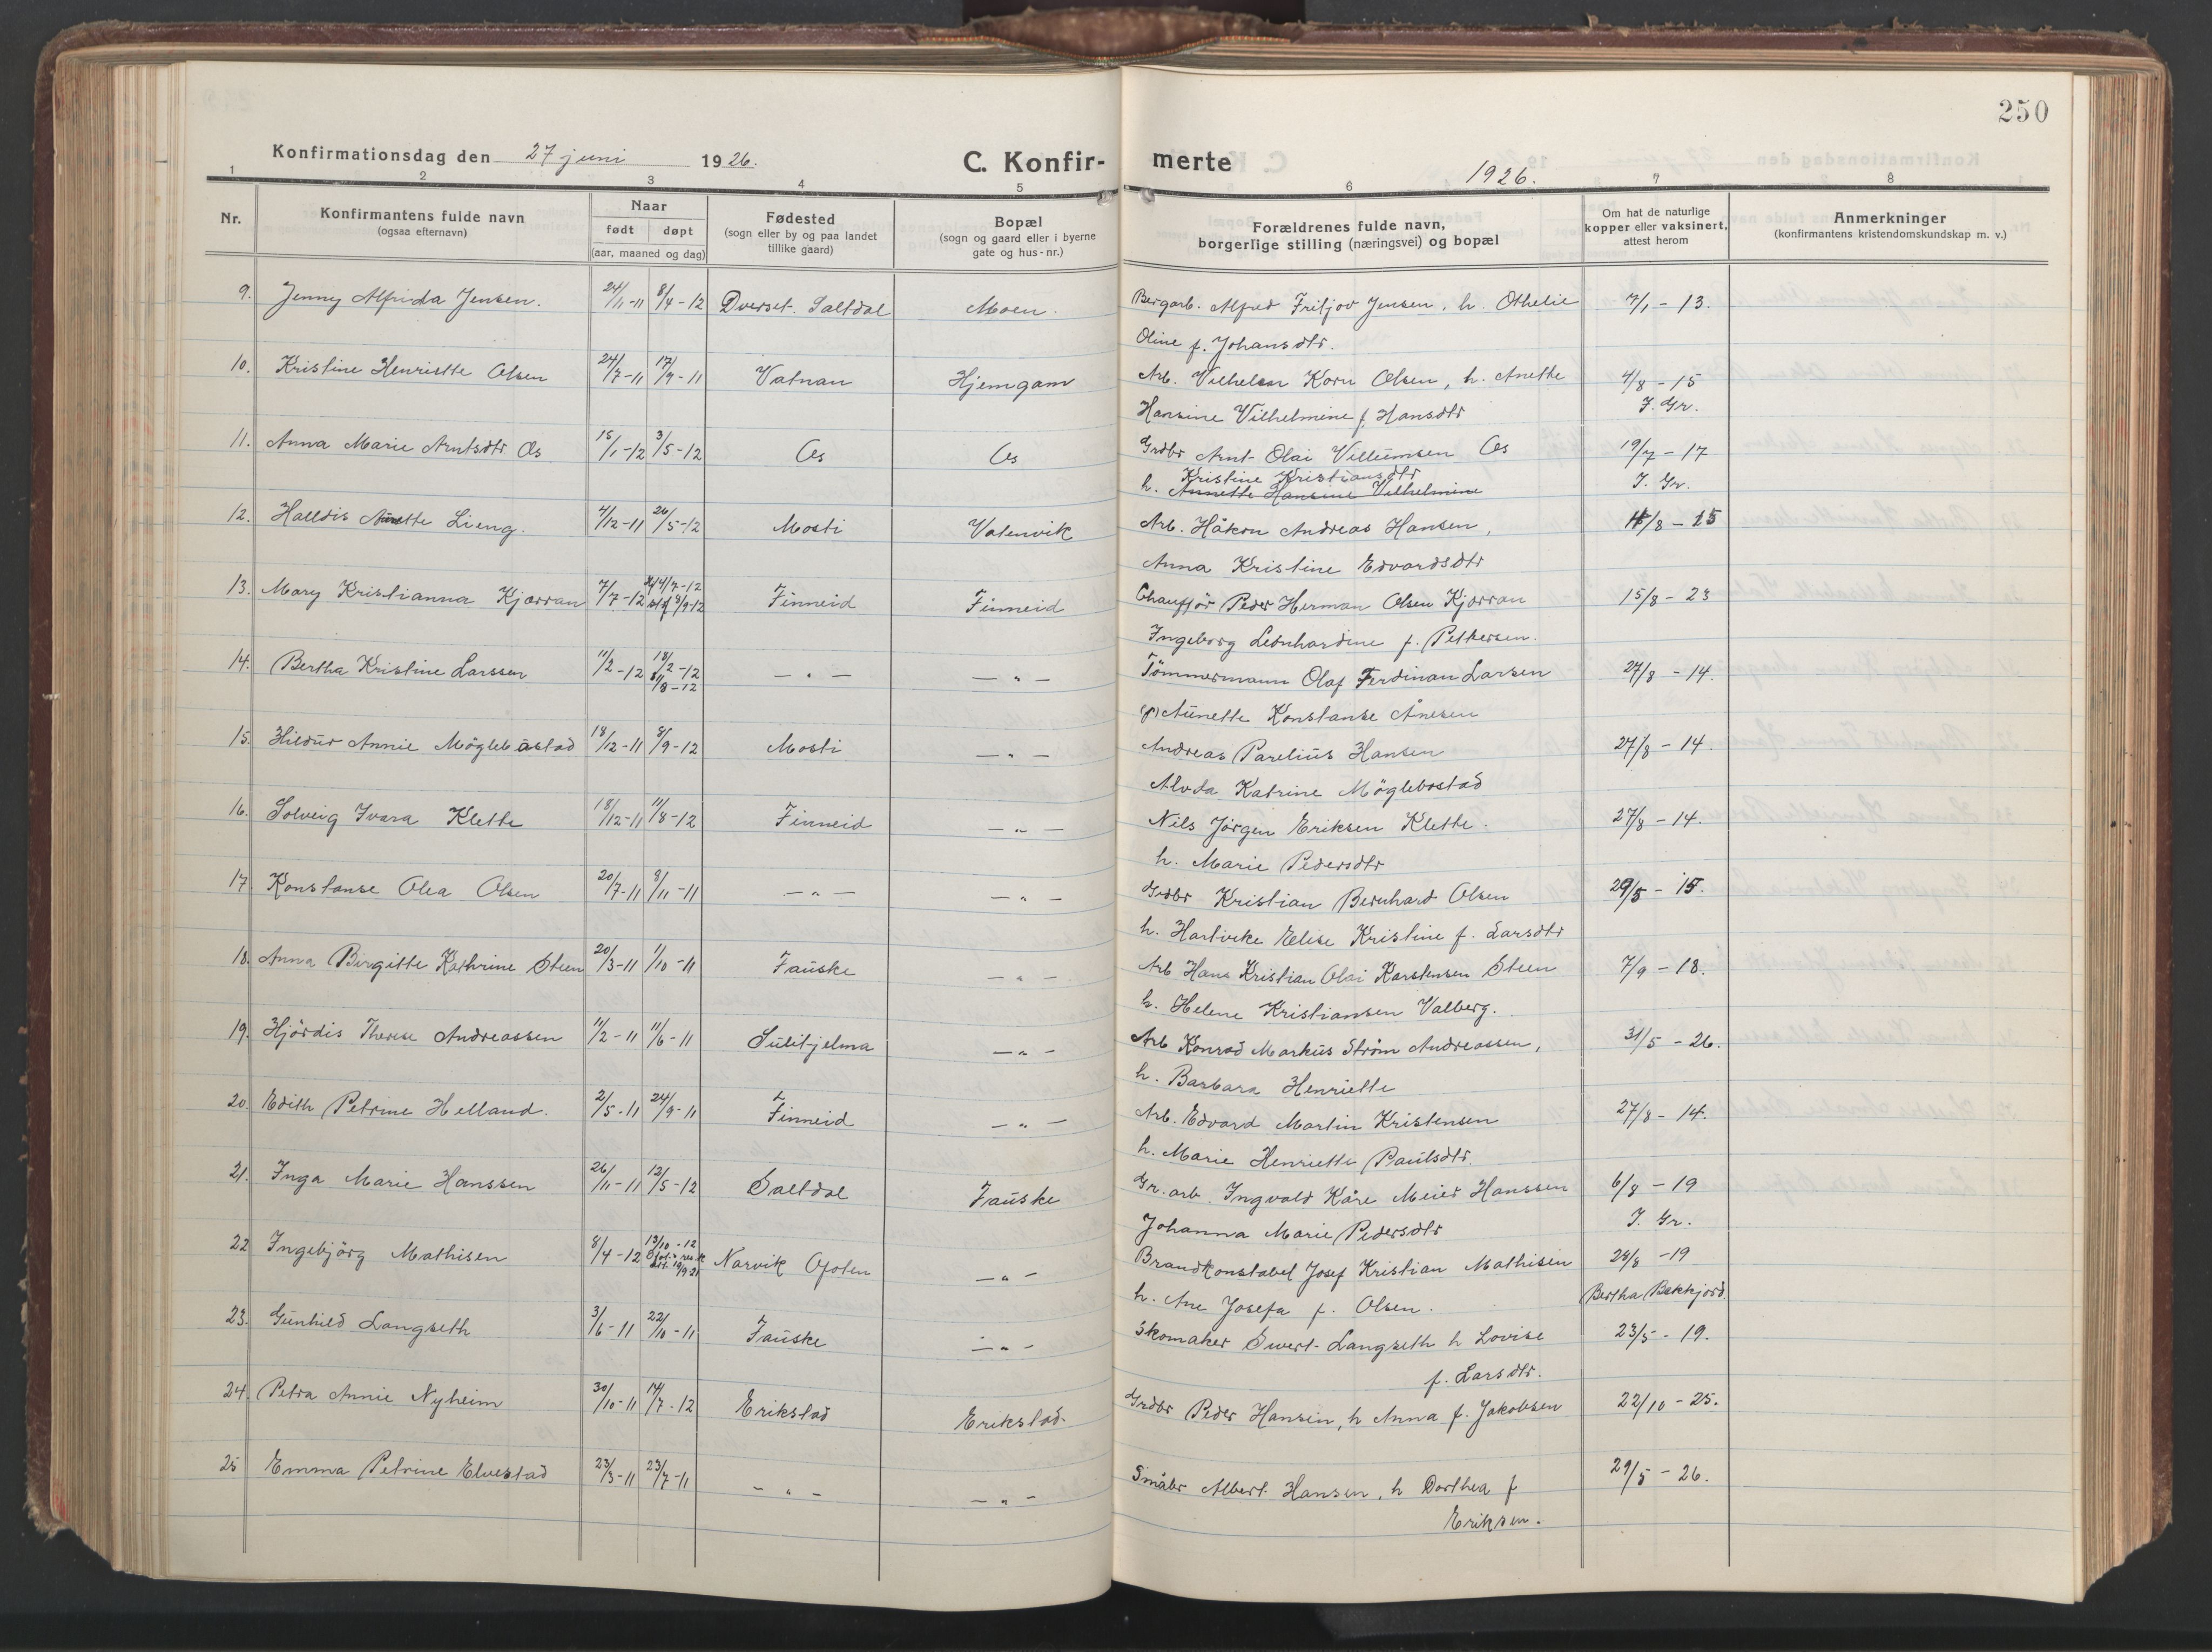 250
Konfirmationsdag den 27 juni 1926.
C. Konfir-
merte
1926.
1 2 3 4 5 6 7 8
Nr.
Konfirmantens fulde navn
(ogsaa efternavn)
Naar
født døpt
(aar, maaned og dag)
Fødested
(sogn eller by og paa landet
tillike gaard)
Bopæl
(sogn og gaard eller i byerne
gate og hus-nr.)
Forældrenes fulde navn,
borgerlige stilling (næringsvei) og bopæl
Om hat de naturlige
kopper eller vaksinert,
attest herom
Anmerkninger
(konfirmantens kristendomskundskap m. v.)
9. Jenny Alfrida Jensen. 24/11-11 8/4-12 Dverset. Saltdal Moen. Bergarb. Alfred Fritjov Jensen, h. Othelie 7/1-13.
Oline f. Johansdtr.
10. Kristine Henriette Olsen 24/7-11 17/9-11 Vatnan Hjemgam Arb. Vilhelm Korn Olsen, h. Anette 4/8-15
Hansine Vilhelmine f. Hansdtr J. Gr.
11. Anna Marie Arntsdtr Os 15/1-12 3/5-12 Os Os Grdbr Arnt Olai Villumsen Os 19/7-17
Kristine Kristiansdtr
h. Annette Hansine Vilhelmine J. Gr.
12. Halldis Lieng. 4/12-11 26/5-12 Mosti Vatenvik Arb. Håkon Andreas Hansen, /8-15
Anna Kristine Edvardsdtr
13. Mary Kristianna Kjærran 7/7-12 14/7-12 Finneid Finneid Chauffør Peder Herman Olsen Kjærran 15/8-23
st.f 8/9-12
Ingeborg Leonhardine f. Pettersen.
14. Bertha Kristine Larssen 11/2-12 18/2-12 — " — — " — Tömmermann Olaf Ferdinan Larsen 27/8-14.
11/8-12
(f) Aunette Konstanse Ånesen
15. Hildur Annie Möglebustad 18/12-11 8/9-12 Mosti — " — Andreas Parelius Hansen 27/8-14.
Alvda Katrine Möglebostad
16. Solveig Ivara Klette 18/12-11 11/8-12 Finneid — " — Nils Jörgen Eriksen Klette. 27/8-14.
h. Marie Pedersdtr
17. Konstanse Olea Olsen 20/7-11 8/11-11 — " — — " — Grdbr Kristian Bernhard Olsen 29/5-15.
h. Hartvikke Elise Kristine f. Larsdtr
18. Anna Birgitte Kathrine Steen 20/3-11 1/10-11 Fauske — " — Arb Hans Kristian Olai Karstensen Steen 7/9-18.
h. Helene Kristiansen Valberg.
19. Hjördis Therese Andreassen 11/2-11 11/6-11 Sulitjelma — " — Arb Konrad Markus Ström Andreassen, 31/5-26.
h. Barbara Henriette
20. Edith Petrine Helland. 2/5-11 24/9-11 Finneid — " — Arb. Edvard Martin Kristensen 27/8-14.
h. Marie Henriette Paulsdtr.
21. Inga Marie Hanssen 26/11-11 12/5-12 Saltdal Fauske Gr. arb. Ingvald Kåre Meier Hanssen 6/8-19
Johanna Marie Pedersdtr J. Gr.
22 Ingebjörg Mathisen 8/4-12 13/10-12 Narvik Ofoten — " — Brandkonstabel Josef Kristian Mathisen 28/8-19
h. Ane Josefa f. Olsen. Bertha Bakkjord.
23. Gunhild Langseth 3/6-11 22/10-11 Fauske — " — Skomaker Sivert Langseth h Lovise 23/5-19.
f. Larsdtr.
24. Petra Annie Nyheim 30/10-11 14/7-12 Erikstad Erikstad. Grdbr Peder Hansen, h Anna f. Jakobsen 22/10-25.
25 Emma Petrine Elvestad 23/3-11 23/7-11 — " — — " — Småbr Albert Hansen, h Dorthea f 29/5-26.
Eriksen.